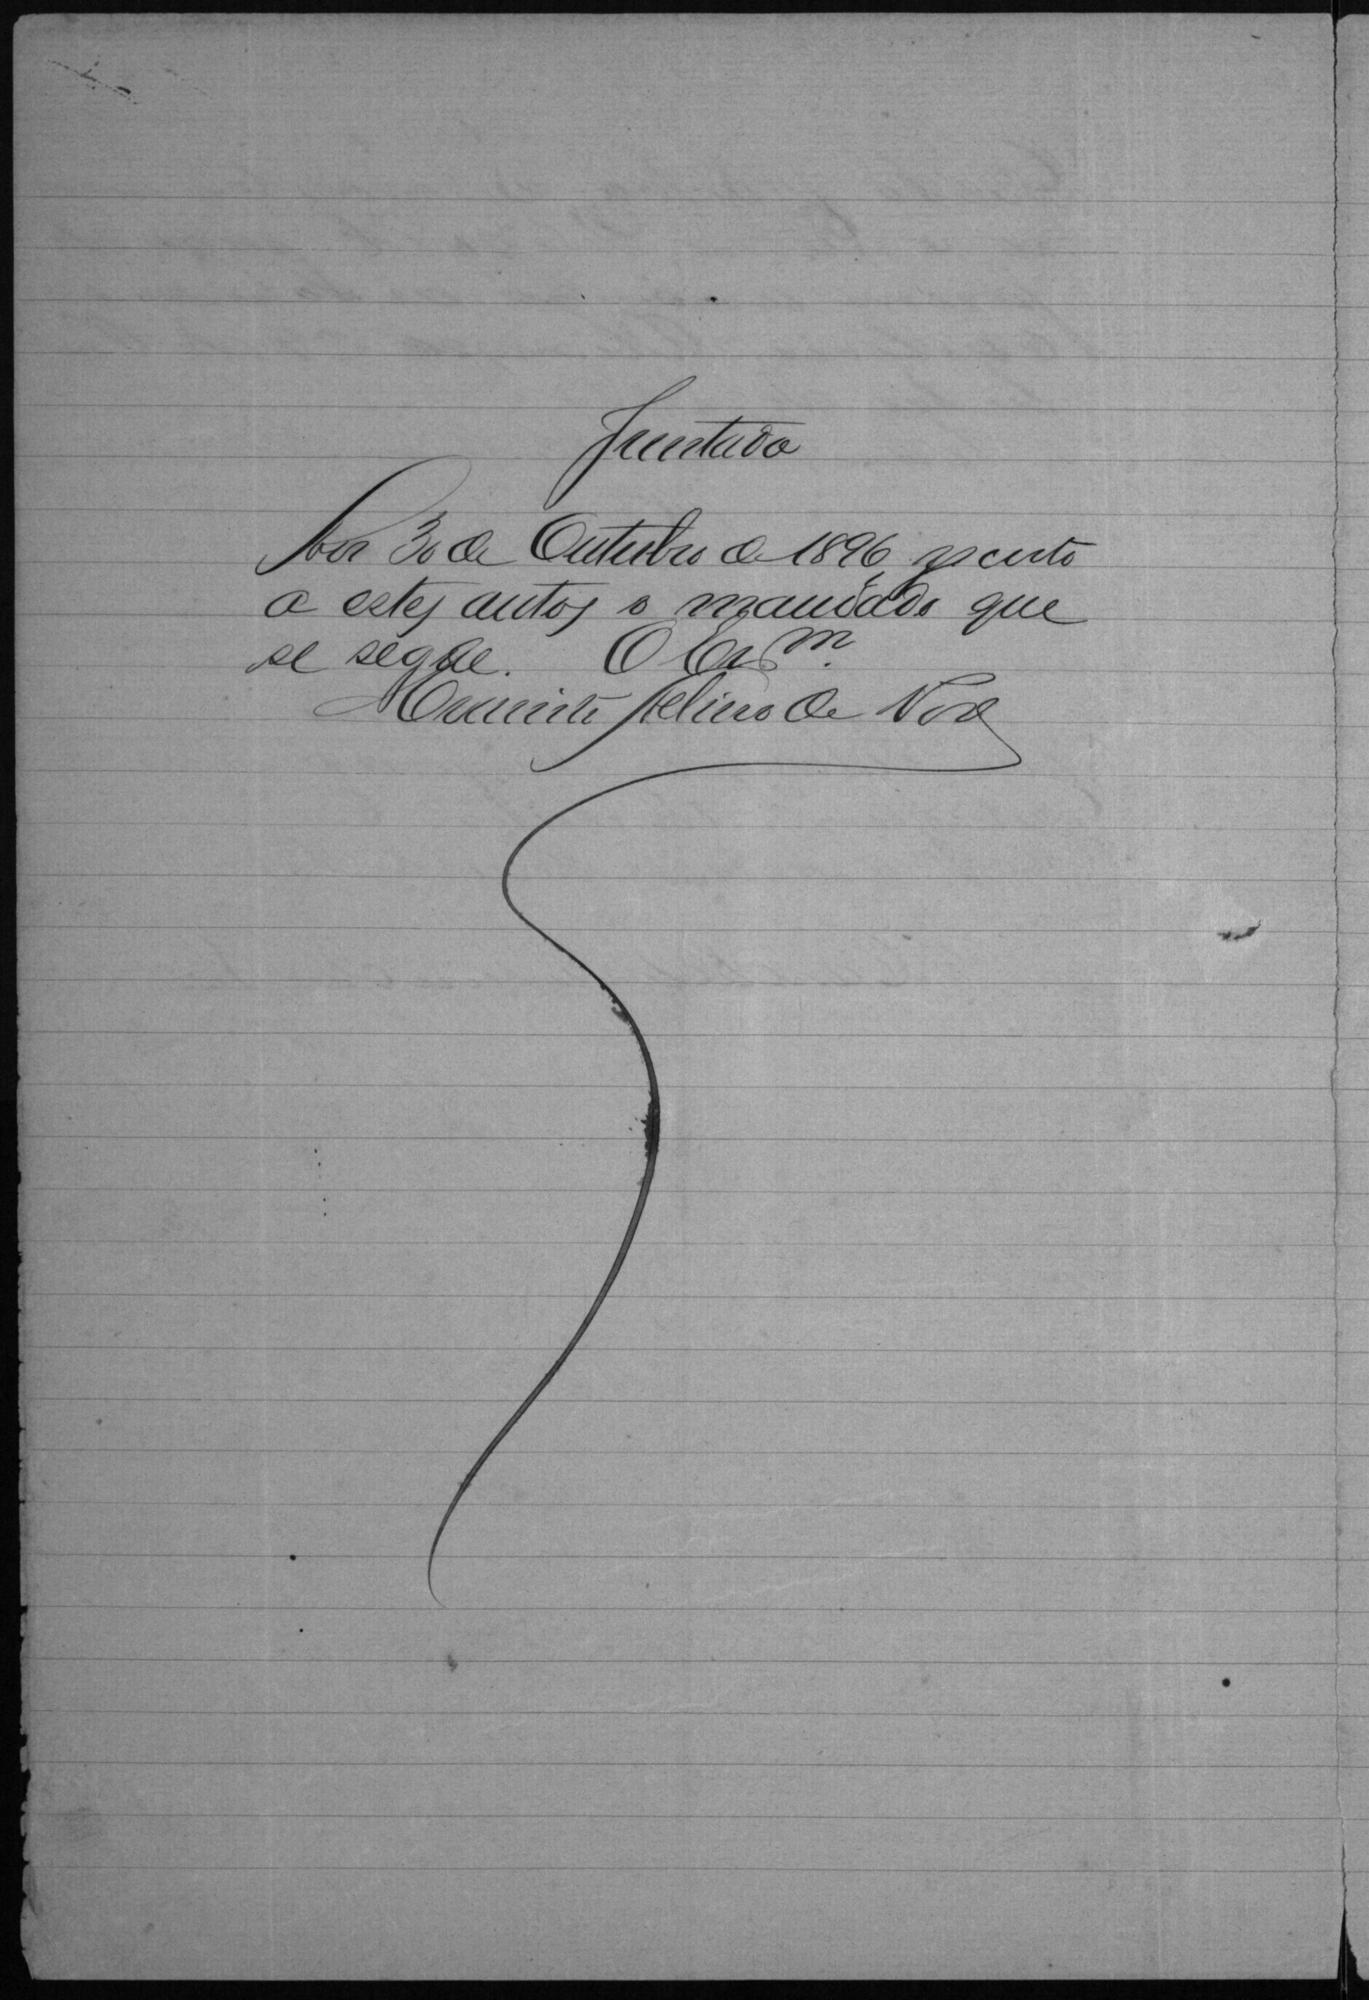 Juntada
Aos 30 de Outubro de 1896, junto
a estes autos o mandado que
se segue. O Esc.m
Felino de